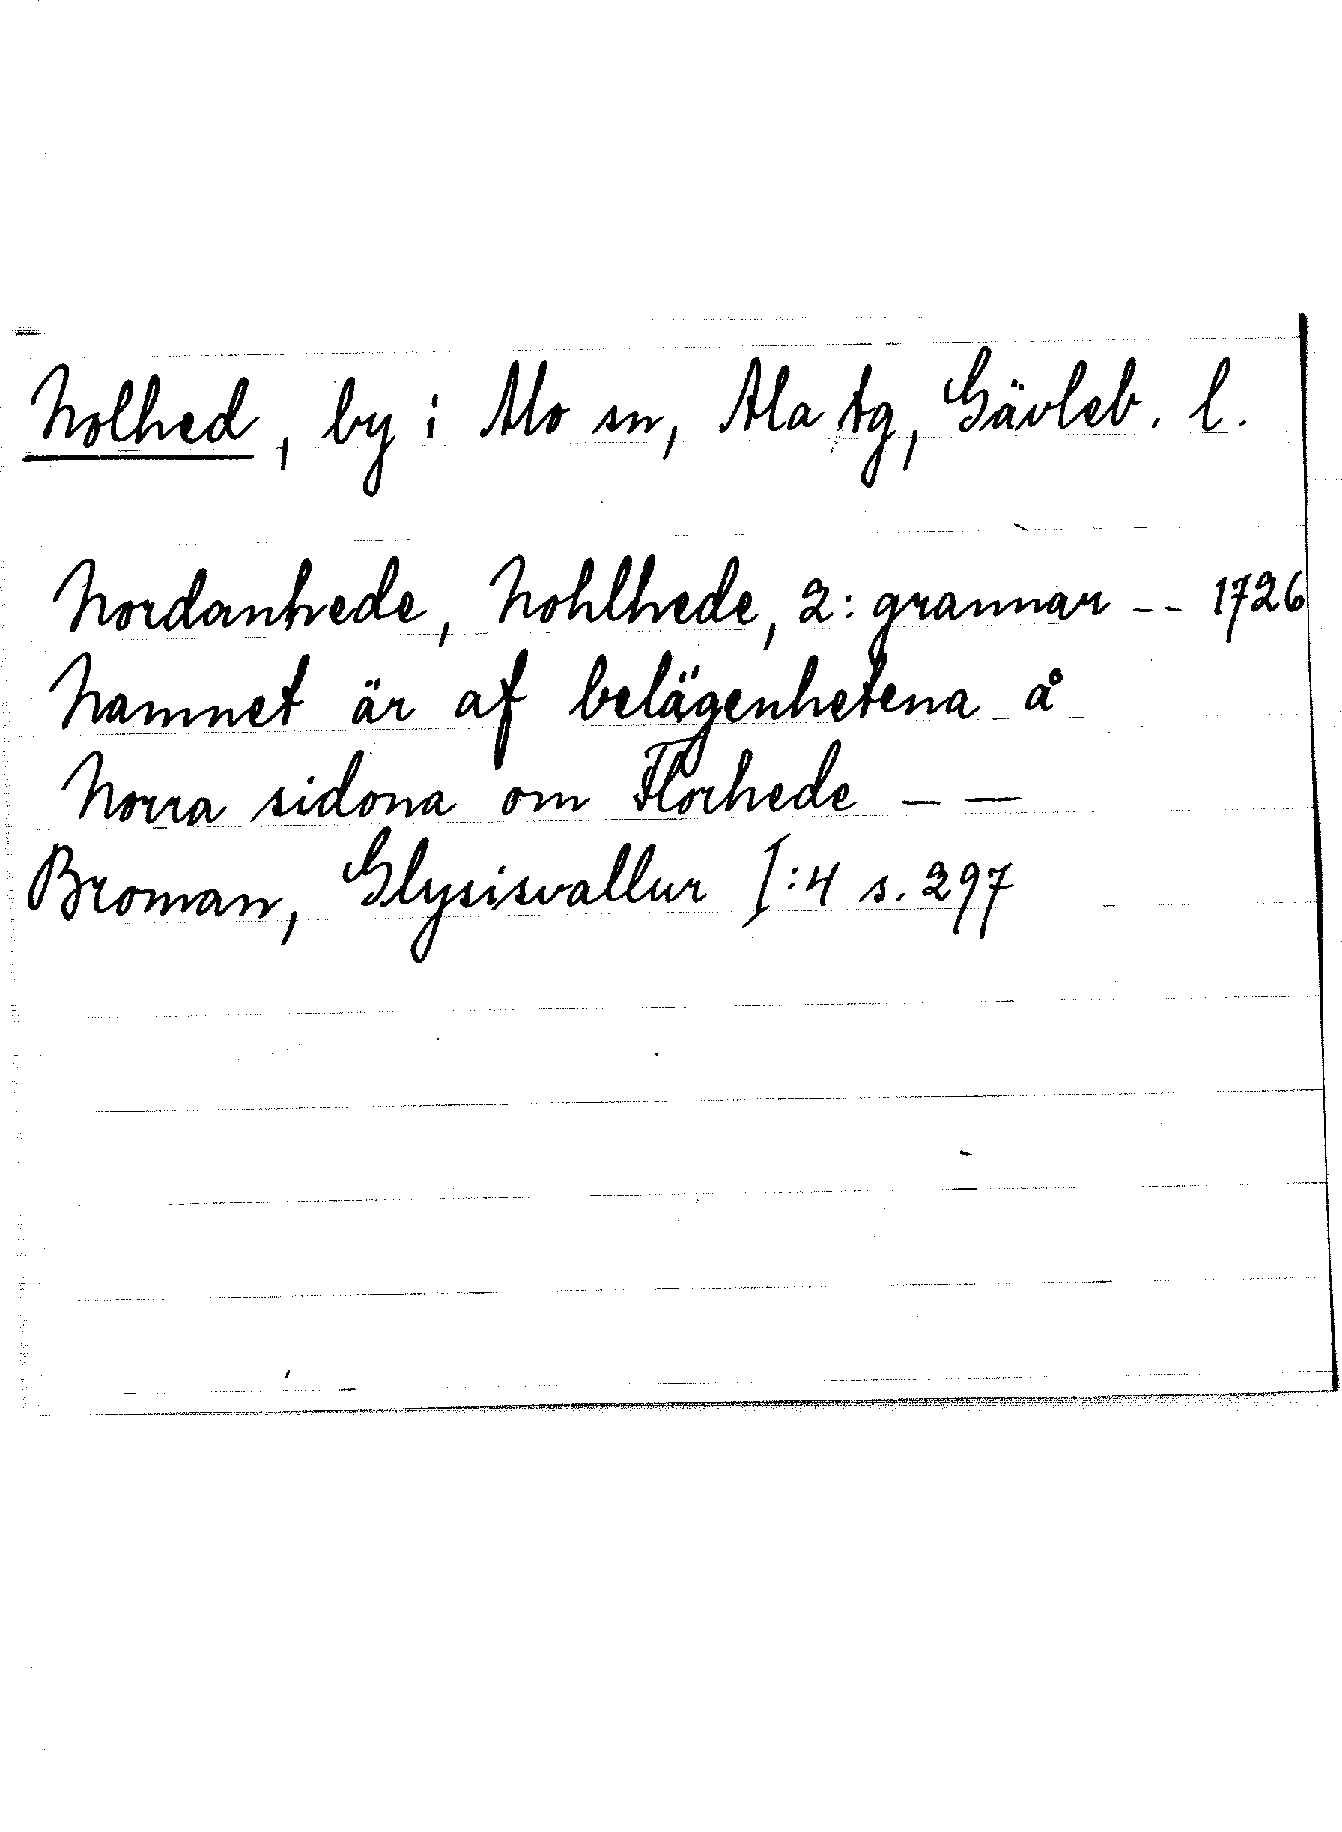 Nolhed, by i Mo sn, Ala tg, Gävleb. l.
Nordanhede, Nohlhede, 2: grannar -- 1726
Namnet är af belägenhetena å
Norra sidona om Florhede — —
Broman, Glysisvallur I:4 s. 297